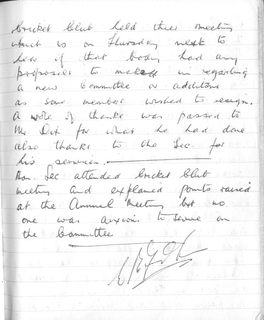 Cricket Club held their meeting
which is on Thursday next to
hear if that body had any
proposies to make in regarding
a new Committee or additions
as some member wished to resign.
A vote of thanks was passed to
Mr Dix for what he had done
also thanks to the Sec for
his services.
Hon. Sec attended Cricket Club
meeting and explained points raised
at the Annual Meeting but no
one was anxious to serve on
the Committee